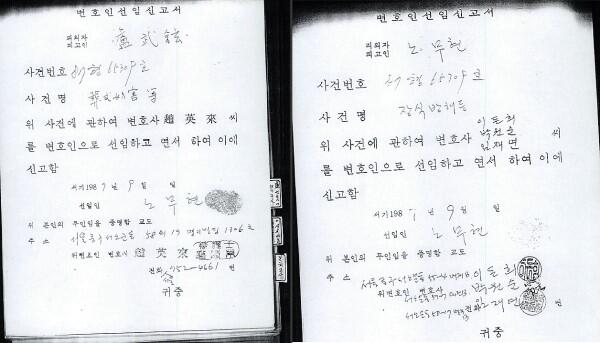 변호인선임신고서
피의자
피고인 盧武鉉
사건번호 87 형 65709 호
사건명
위 사건에 관하여 변호사 趙英來 씨
를 변호인으로 선임하고 연서 하여 이에
신고함
서기 198 7 년 9 월 일
선임인 노무현
위 본인의 무인임을 증명함 교도
주소 서울 중구 서소문동
위변호인 변호사 趙英來
전화 752-9661 번
귀중
변호인선임신고서
피의자
피고인 노무현
사건번호 87 형 65709 호
사건명 장식방해등
이돈희
위 사건에 관하여 변호사 박원순 씨
임재연
를 변호인으로 선임하고 연서 하여 이에
신고함
서기 198 7 년 9 월 일
선임인 노무현
위 본인의 무인임을 증명함 교도
주소 서울 중구 서소문동 이돈희
위변호인 변호사
박원순
전화 임재연 번
귀중